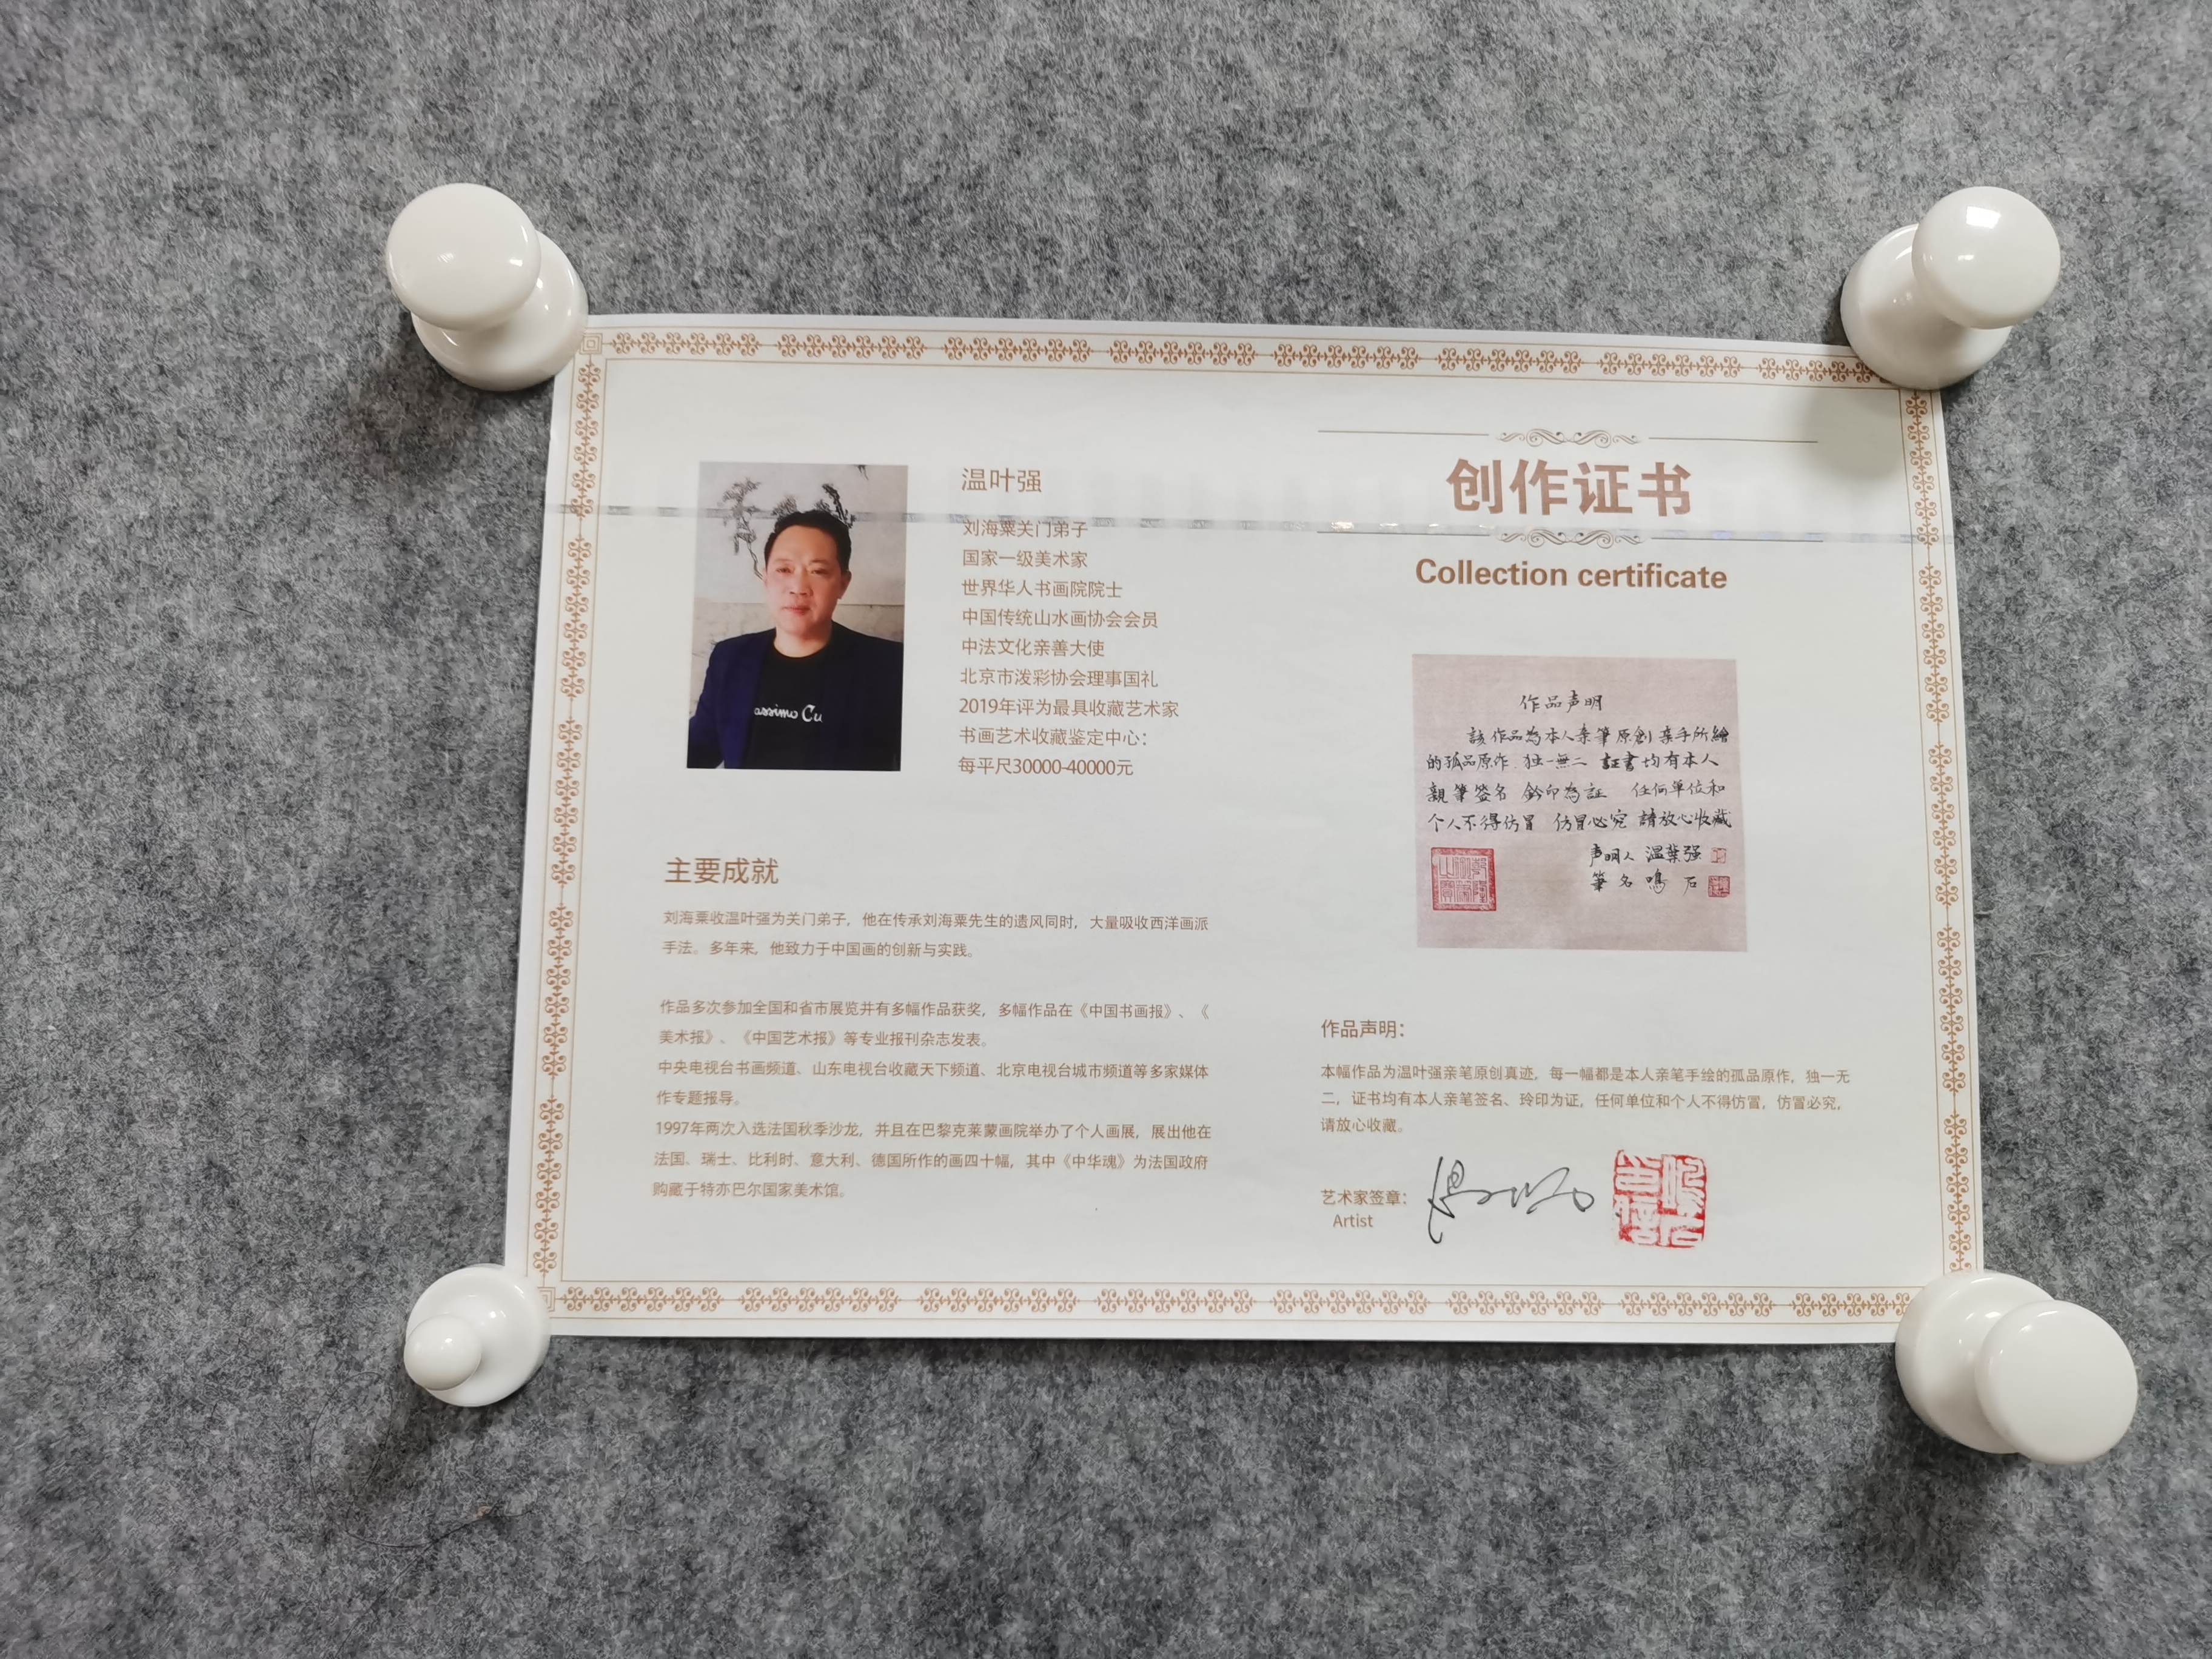 温叶强
刘海粟关门弟子
国家一级美术家
世界华人书画院院士
中国传统山水画协会会员
中法文化亲善大使
北京市泼彩协会理事国礼
2019年评为最具收藏艺术家
书画艺术收藏鉴定中心：
每平尺30000-40000元
assimo Cu
主要成就
刘海粟收温叶强为关门弟子，他在传承刘海粟先生的遗风同时，大量吸收西洋画派
手法。多年来，他致力于中国画的创新与实践。
作品多次参加全国和省市展览并有多幅作品获奖，多幅作品在《中国书画报》、《
美术报》、《中国艺术报》等专业报刊杂志发表。
中央电视台书画频道、山东电视台收藏天下频道、北京电视台城市频道等多家媒体
作专题报导。
1997年两次入选法国秋季沙龙，并且在巴黎克莱蒙画院举办了个人画展，展出他在
法国、瑞士、比利时、意大利、德国所作的画四十幅，其中《中华魂》为法国政府
购藏于特亦巴尔国家美术馆。
创作证书
Collection certificate
作品声明
該作品為本人亲筆原創 亲手所繪
的孤品原作 独一無二 証書均有本人
親筆签名 鈐印為証 任何单位和
个人不得仿冒 仿冒必究 請放心收藏
声明人 温葉强
筆名 鳴石
作品声明：
本幅作品为温叶强亲笔原创真迹，每一幅都是本人亲笔手绘的孤品原作，独一无
二，证书均有本人亲笔签名、玲印为证，任何单位和个人不得仿冒，仿冒必究，
请放心收藏。
艺术家签章：
Artist